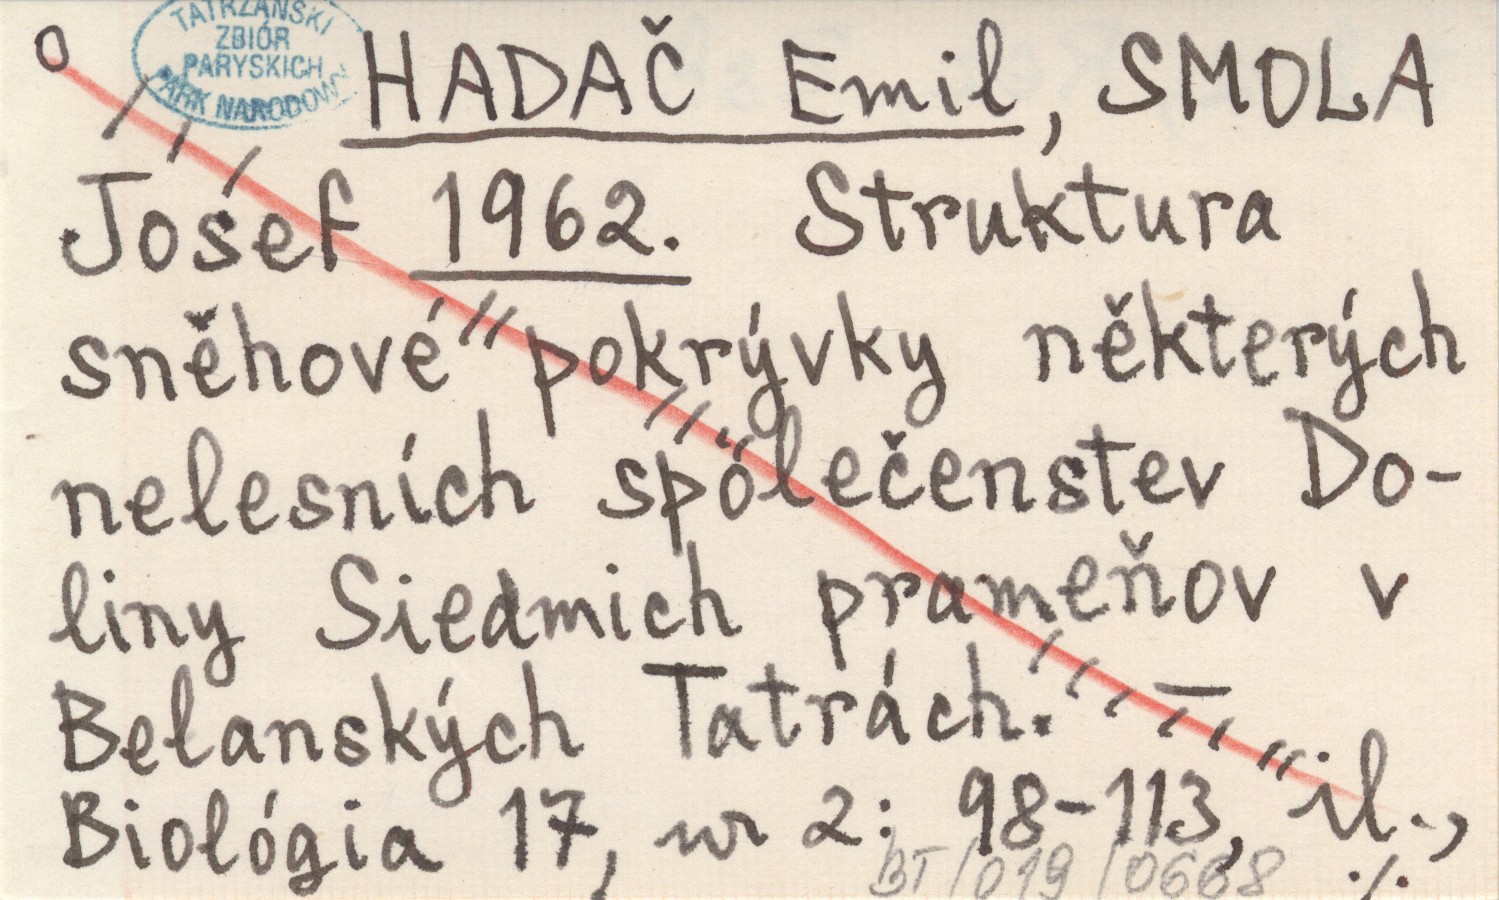 O
TATRZAŃSKI
ZBIÓR
PARYSKICH
PARK NARODOWY
HADAČ Emil, SMOLA
Josef 1962. Struktura
sněhové pokrývky některých
nelesních společenstev Do-
liny Siedmich prameňov v
Belanských Tatrách. —
Biológia 17, nr 2: 98-113, il.,
BT/019/0668 ./.